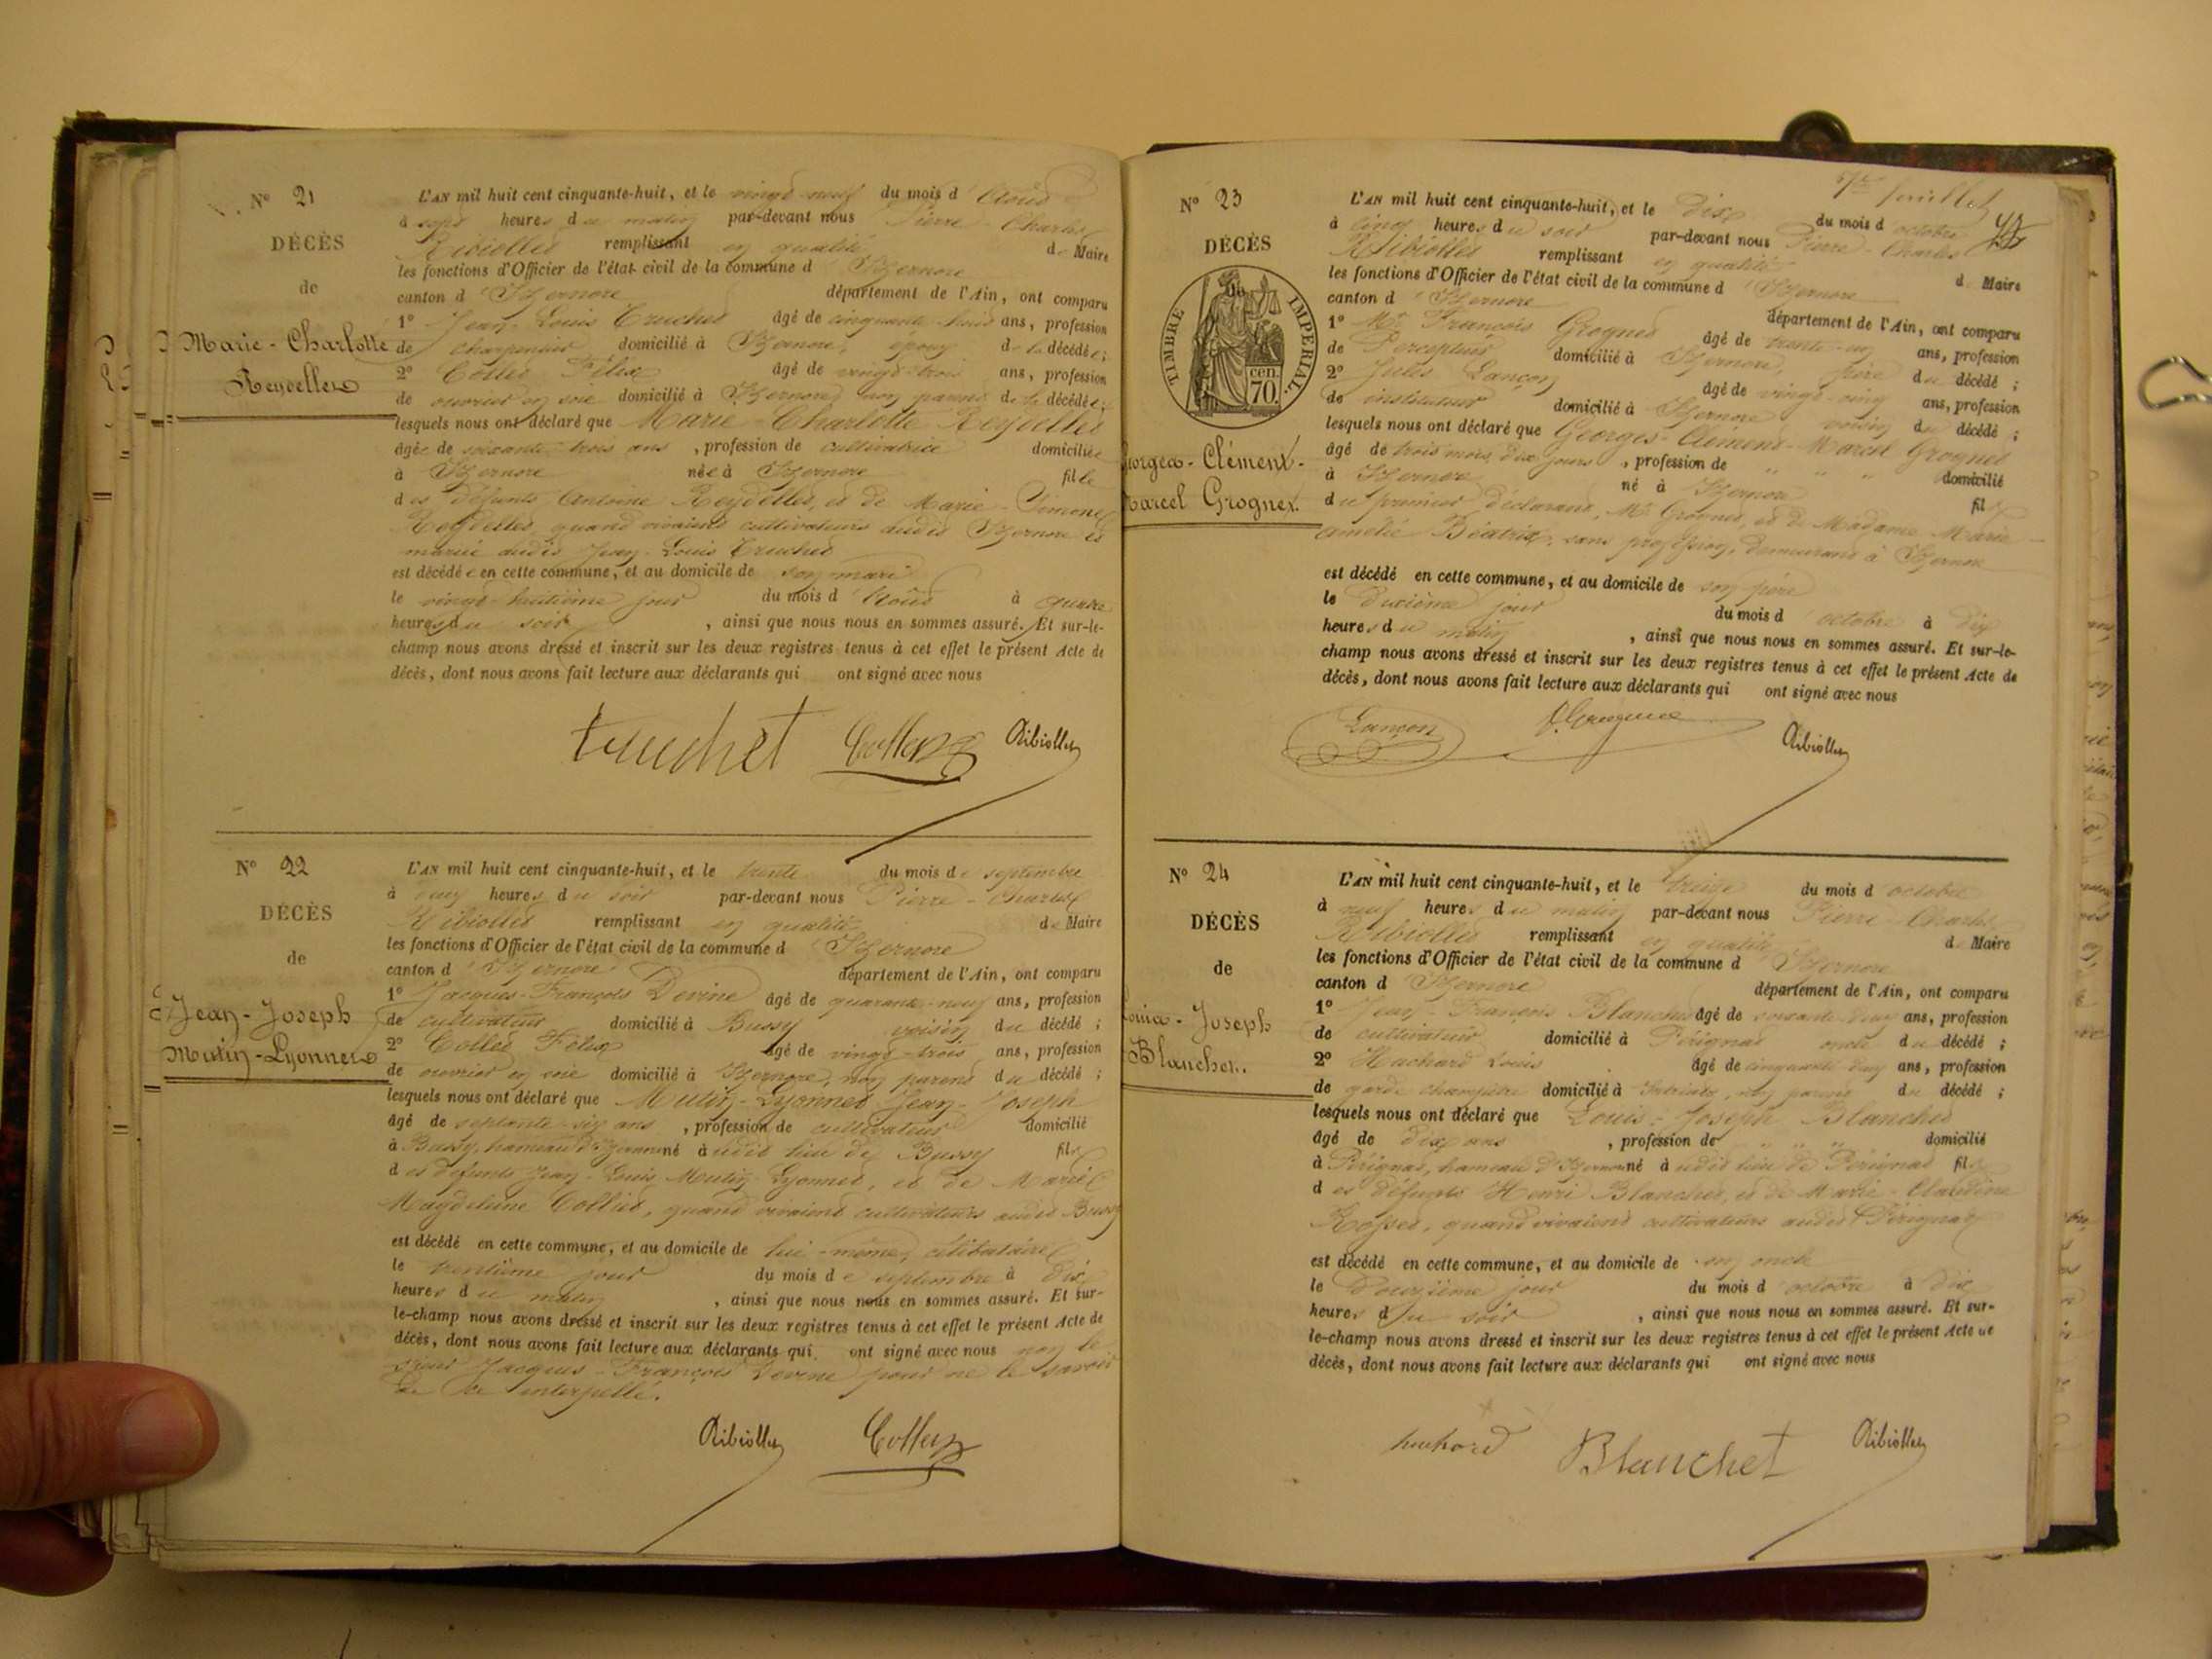 N° 21
DÉCÈS
de
Marie-Charlotte
Reydellet
L'AN mil huit cent cinquante-huit, et le vingt-neuf du mois d'Août
à sept heures du matin par-devant nous Pierre-Charles
Ribiollet remplissant en qualité de Maire
les fonctions d'Officier de l'état civil de la commune d'Izernore
canton d'Izernore département de l'Ain, ont comparu
1° Jean-Louis Truchet âgé de cinquante-huit ans, profession
de charpentier domicilié à Izernore, époux de la décédée;
2° Collet Félix âgé de vingt-trois ans, profession
de ouvrier en soie domicilié à Izernore non parent de la décédée;
lesquels nous ont déclaré que Marie-Charlotte Reydellet
âgée de soixante-trois ans, profession de cultivatrice domiciliée
à Izernore née à Izernore fille
des défunts Antoine Reydellet, et de Marie-Simone
Reydellet, quand vivaient cultivateurs audit Izernore et
mariée audit Jean-Louis Truchet
est décédée en cette commune, et au domicile de son mari
le vingt-huitième jour du mois d'Août à quatre
heures du soir, ainsi que nous nous en sommes assuré. Et sur-le-
champ nous avons dressé et inscrit sur les deux registres tenus à cet effet le présent Acte de
décès, dont nous avons fait lecture aux déclarants qui ont signé avec nous
truchet Collet Ribiollet
N° 22
DÉCÈS
de
Jean-Joseph
Mutin-Lyonnet
L'AN mil huit cent cinquante-huit, et le trente du mois de septembre
à deux heures du soir par-devant nous Pierre-Charles
Ribiollet remplissant en qualité de Maire
les fonctions d'Officier de l'état civil de la commune d'Izernore
canton d'Izernore département de l'Ain, ont comparu
1° Jacques-François Devine âgé de quarante-neuf ans, profession
de cultivateur domicilié à Bussy voisin du décédé;
2° Collet Félix âgé de vingt-trois ans, profession
de ouvrier en soie domicilié à Izernore, non parent du décédé;
lesquels nous ont déclaré que Mutin-Lyonnet Jean-Joseph
âgé de septante-six ans, profession de cultivateur domicilié
à Bussy, hameau d'Izernore né audit lieu de Bussy fils
des défunts Jean-Louis Mutin-Lyonnet, et de Marie
Magdeleine Collet, quand vivaient cultivateurs audit Bussy
est décédé en cette commune, et au domicile de lui-même, célibataire
le trentième jour du mois de septembre à dix
heures du matin, ainsi que nous nous en sommes assuré. Et sur-
le-champ nous avons dressé et inscrit sur les deux registres tenus à cet effet le présent Acte de
décès, dont nous avons fait lecture aux déclarants qui ont signé avec nous non le
sieur Jacques-François Devine pour ne le savoir
de ce interpellé.
Ribiollet Collet
feuillet
N° 23
DÉCÈS
TIMBRE IMPÉRIAL
70 cen.
Georges-Clément-
Marcel Grognet.
L'AN mil huit cent cinquante-huit, et le dix du mois d'octobre
à cinq heures du soir par-devant nous Pierre-Charles
Ribiollet remplissant en qualité de Maire
les fonctions d'Officier de l'état civil de la commune d'Izernore
canton d'Izernore département de l'Ain, ont comparu
1° Mr François Grognet âgé de trente-un ans, profession
de Percepteur domicilié à Izernore, père du décédé;
2° Jules Lançon âgé de vingt-cinq ans, profession
de instituteur domicilié à Izernore voisin du décédé;
lesquels nous ont déclaré que Georges-Clément-Marcel Grognet
âgé de trois mois, dix jours, profession de " " " domicilié
à Izernore né à Izernore fils
du premier déclarant, Mr Grognet, et de Madame Marie-
Amélie Béatrix, sans profession, demeurant à Izernore
est décédé en cette commune, et au domicile de son père
le dixième jour du mois d'octobre à dix
heures du matin, ainsi que nous nous en sommes assuré. Et sur-le-
champ nous avons dressé et inscrit sur les deux registres tenus à cet effet le présent Acte de
décès, dont nous avons fait lecture aux déclarants qui ont signé avec nous
Lançon Ribiollet
N° 24
DÉCÈS
de
Louis-Joseph
Blanchet.
L'AN mil huit cent cinquante-huit, et le treize du mois d'octobre
à neuf heures du matin par-devant nous Pierre-Charles
Ribiollet remplissant en qualité de Maire
les fonctions d'Officier de l'état civil de la commune d'Izernore
canton d'Izernore département de l'Ain, ont comparu
1° Jean-François Blanchet âgé de soixante-deux ans, profession
de cultivateur domicilié à Pérignat oncle du décédé;
2° Hachard Louis âgé de cinquante-deux ans, profession
de garde champêtre domicilié à Intriat, non parent du décédé;
lesquels nous ont déclaré que Louis-Joseph Blanchet
âgé de dix ans, profession de " " " domicilié
à Pérignat, hameau d'Izernore né audit lieu de Pérignat fils
des défunts Henri Blanchet, et de Marie-Claudine
Rosset, quand vivaient cultivateurs audit Pérignat
est décédé en cette commune, et au domicile de son oncle
le douzième jour du mois d'octobre à dix
heures du soir, ainsi que nous nous en sommes assuré. Et sur-
le-champ nous avons dressé et inscrit sur les deux registres tenus à cet effet le présent Acte de
décès, dont nous avons fait lecture aux déclarants qui ont signé avec nous
hachard Blanchet Ribiollet